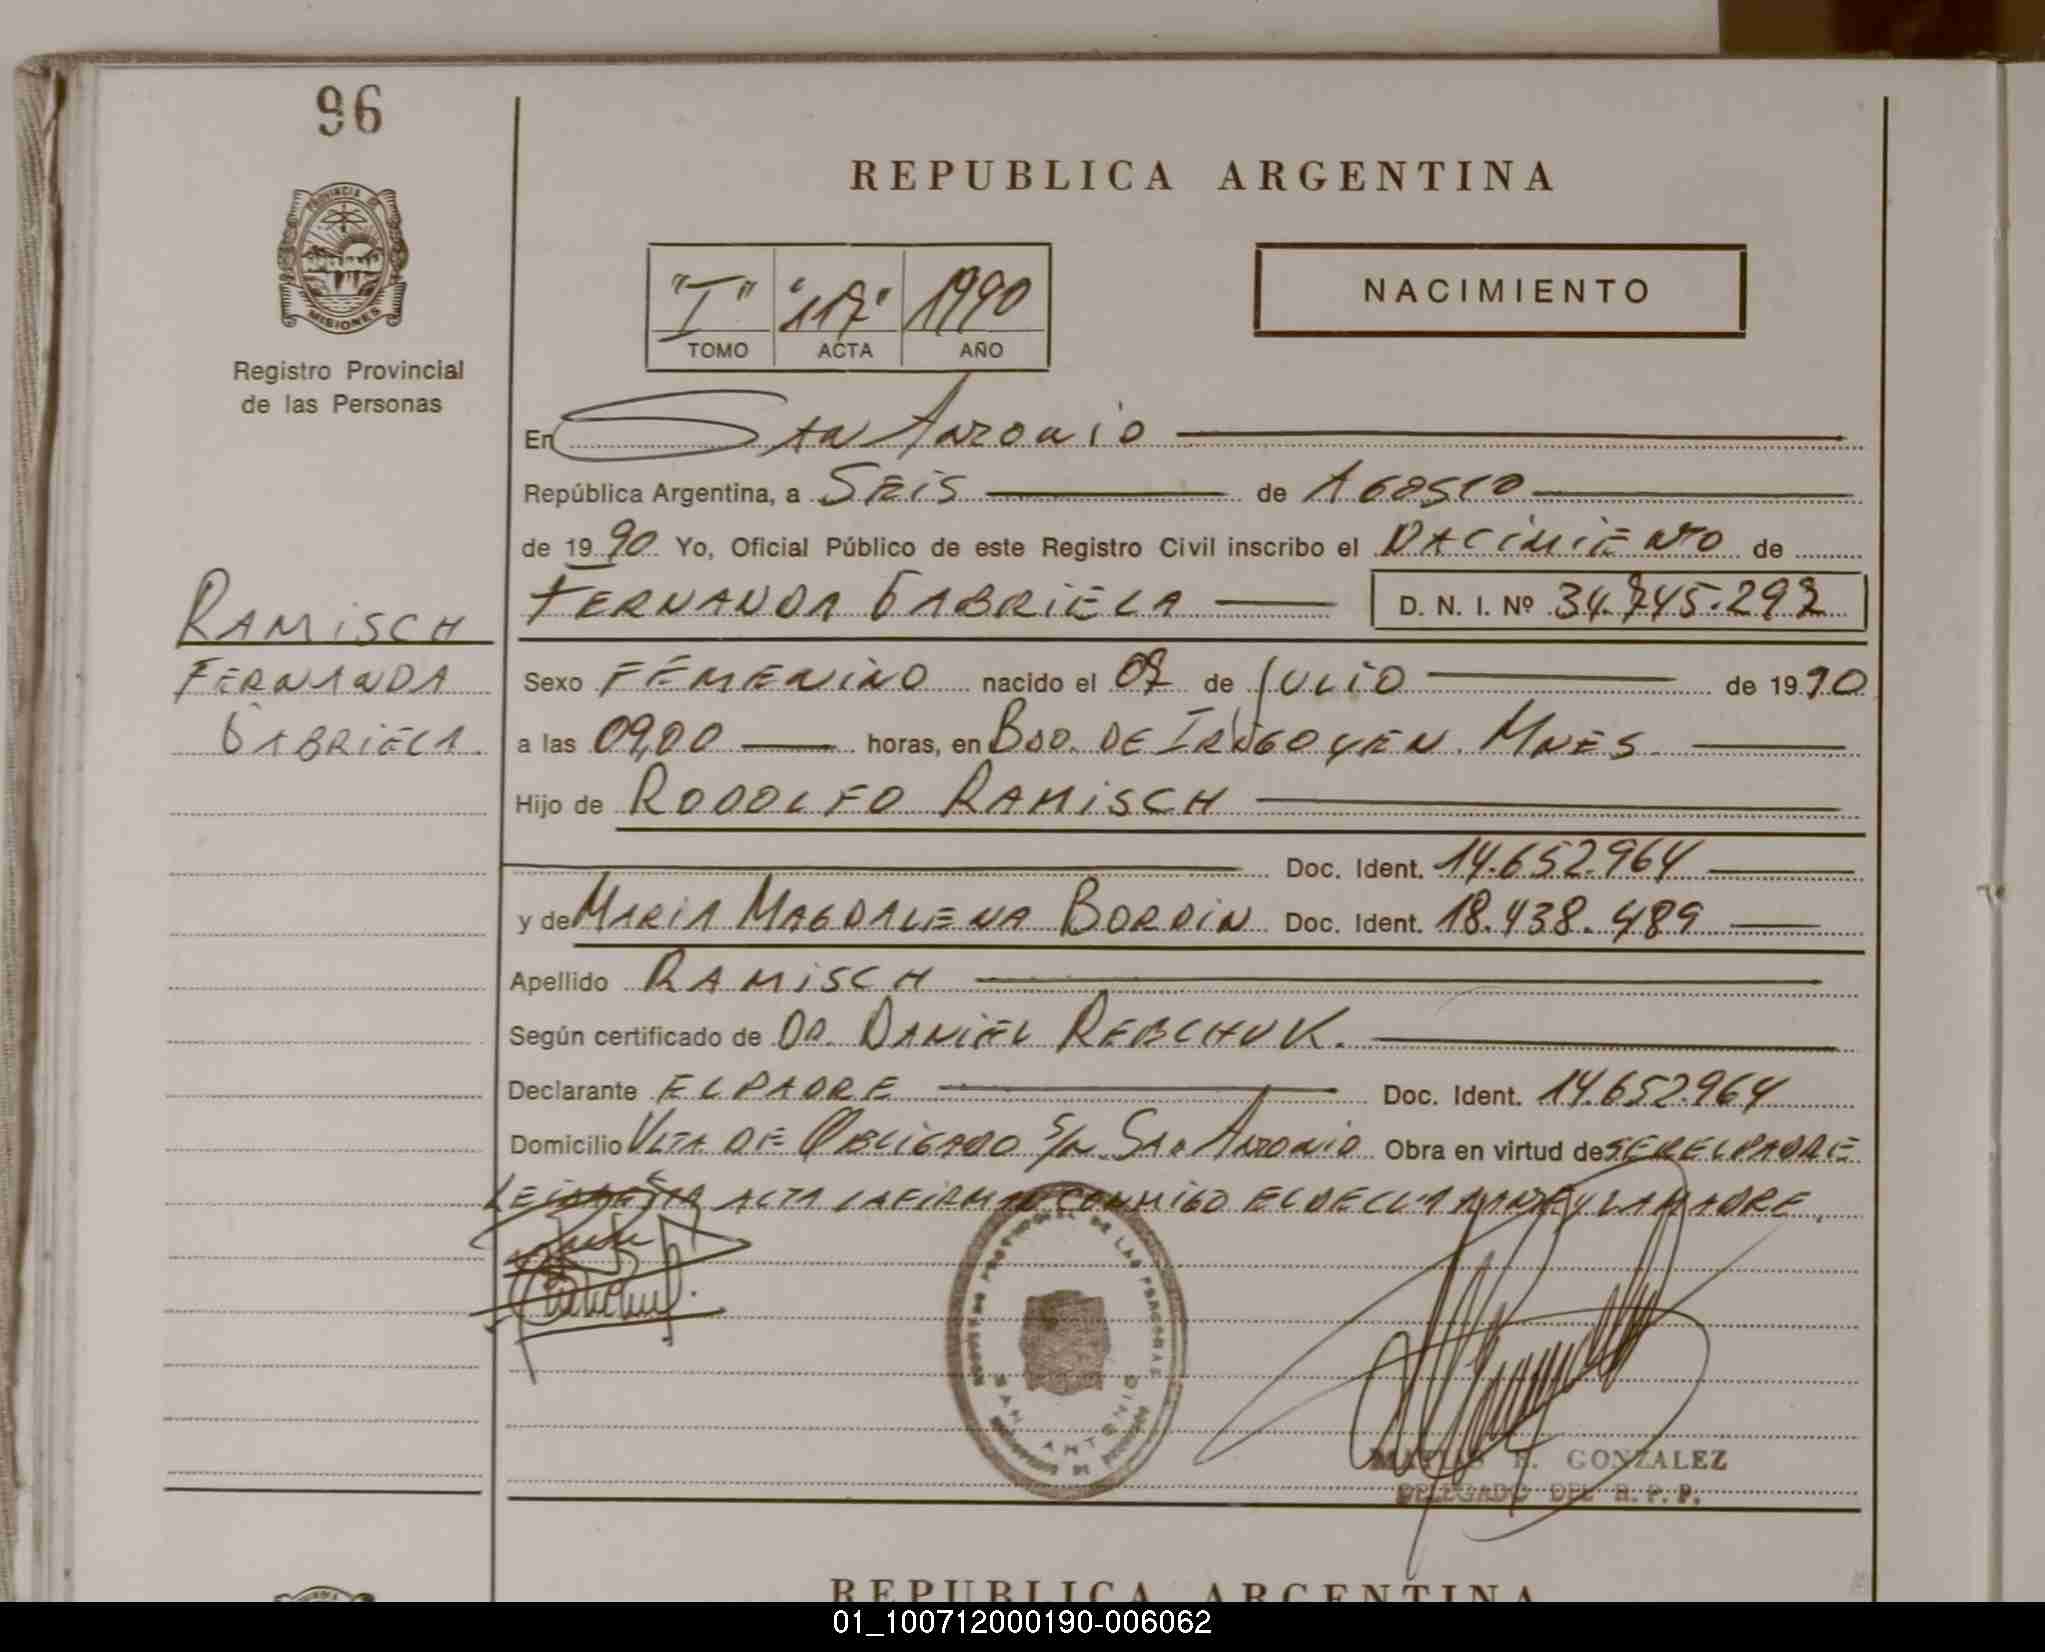 96
REPUBLICA ARGENTINA
PROVINCIA DE
MISIONES
Registro Provincial
de las Personas
"I" "117" 1990
TOMO ACTA AÑO
NACIMIENTO
En San Antonio
República Argentina, a SEIS de AGOSTO
de 1990 Yo, Oficial Público de este Registro Civil inscribo el NACIMIENTO de
FERNANDA GABRIELA D. N. I. Nº 34.745.292
RAMISCH
FERNANDA
GABRIELA.
Sexo FEMENINO nacido el 07 de JULIO de 1990
a las 09,00 horas, en BDO. DE IRIGOYEN. MNES
Hijo de RODOLFO RAMISCH
Doc. Ident. 14.652.964
y de MARIA MAGDALENA BORDIN Doc. Ident. 18.438.489
Apellido RAMISCH
Según certificado de DR. DANIEL REBCHUK.
Declarante EL PADRE Doc. Ident. 14.652.964
Domicilio VLTA DE OBLIGADO S/N SAN ANTONIO Obra en virtud de SER EL PADRE
LEIDA ESTA ACTA LA FIRMAN CONMIGO EL DECLARANTE Y LA MADRE.
PROVINCIAL DE LAS PERSONAS
SAN ANTONIO
GONZALEZ
DELEGADO DEL R. P. P.
REPUBLICA ARGENTINA
01_100712000190-006062